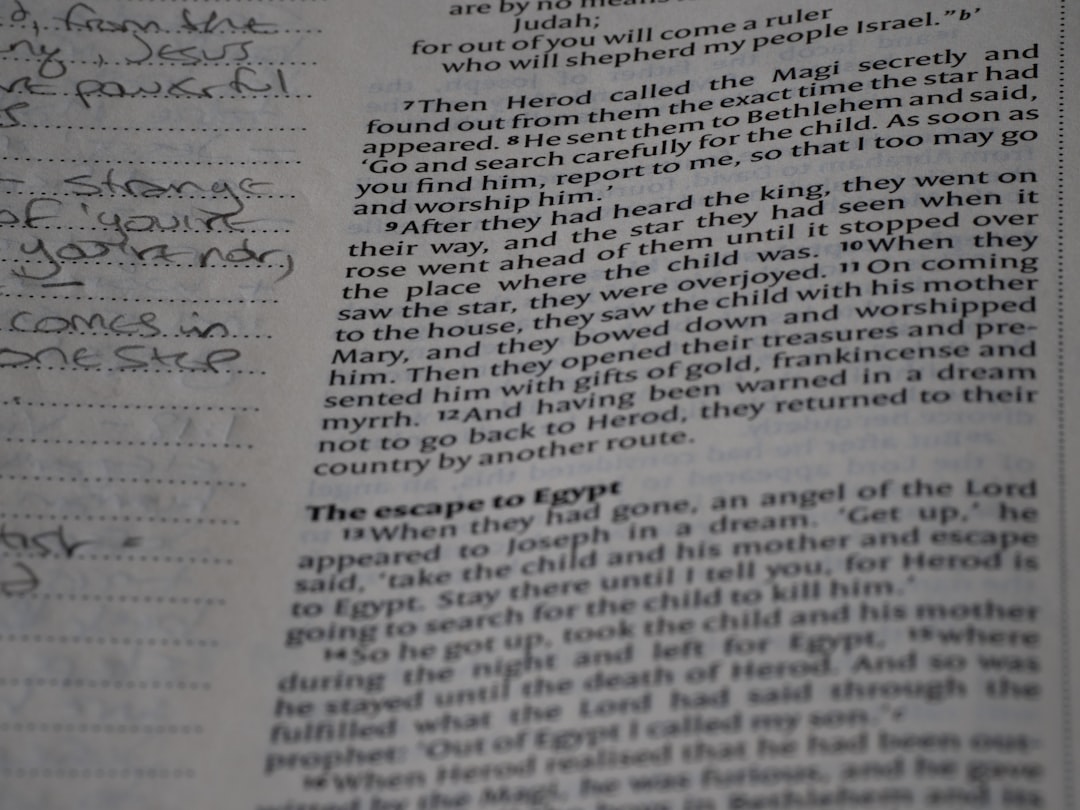 from the
, Jesus
powerful
strange
of 'you're
you're not,
comes in
one step
are by no means
Judah;
for out of you will come a ruler
who will shepherd my people Israel."b'
7Then Herod called the Magi secretly and
found out from them the exact time the star had
appeared. 8He sent them to Bethlehem and said,
'Go and search carefully for the child. As soon as
you find him, report to me, so that I too may go
and worship him.'
9After they had heard the king, they went on
their way, and the star they had seen when it
rose went ahead of them until it stopped over
the place where the child was. 10When they
saw the star, they were overjoyed. 11On coming
to the house, they saw the child with his mother
Mary, and they bowed down and worshipped
him. Then they opened their treasures and pre-
sented him with gifts of gold, frankincense and
myrrh. 12And having been warned in a dream
not to go back to Herod, they returned to their
country by another route.
The escape to Egypt
13When they had gone, an angel of the Lord
appeared to Joseph in a dream. 'Get up,' he
said, 'take the child and his mother and escape
to Egypt. Stay there until I tell you, for Herod is
going to search for the child to kill him.'
14So he got up, took the child and his mother
during the night and left for Egypt, 15where
he stayed until the death of Herod. And so was
fulfilled what the Lord had said through the
prophet: 'Out of Egypt I called my son.'c
16When Herod realised that he had been out-
witted by the Magi, he was furious, and he gave
in Bethlehem and its